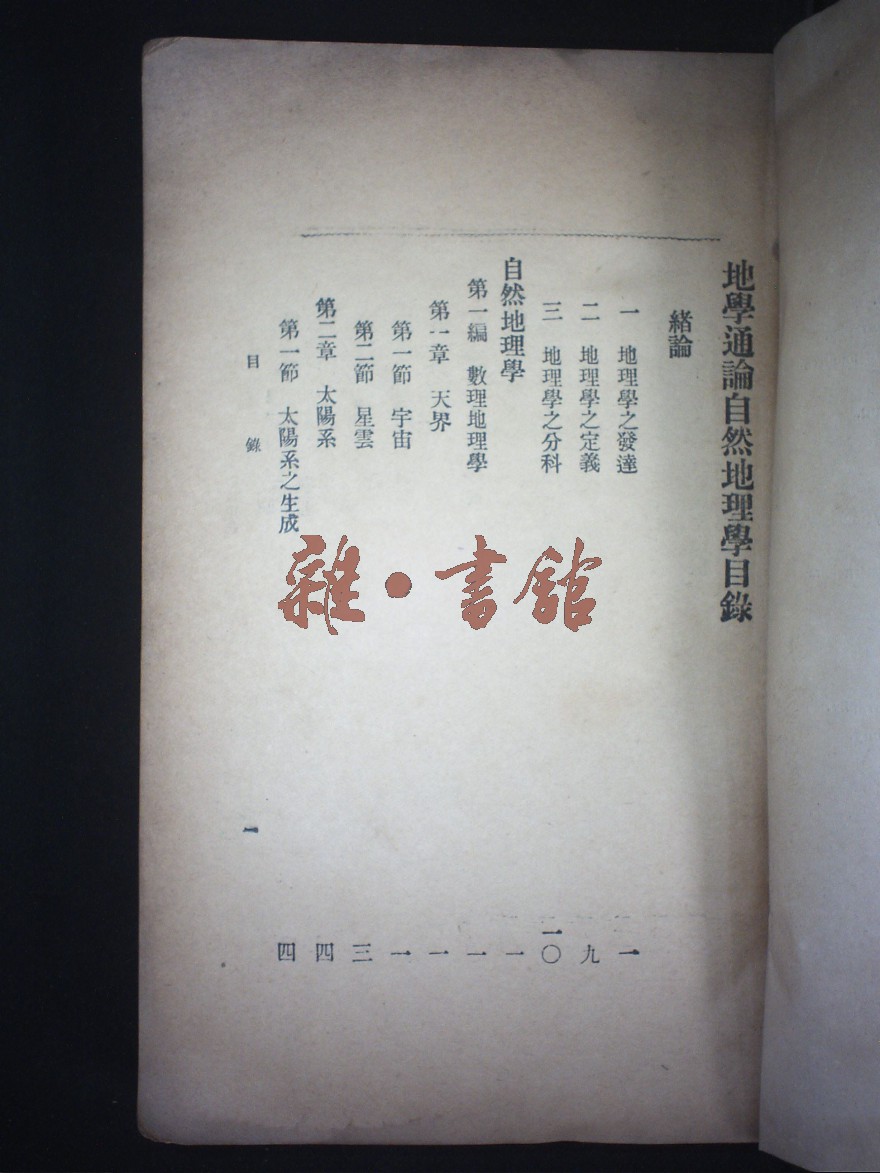 地學通論自然地理學目錄
緒論
一 地理學之發達 一
二 地理學之定義 九
三 地理學之分科 一〇
自然地理學 一
第一編 數理地理學 一
第一章 天界 一
第一節 宇宙 一
第二節 星雲 三
第二章 太陽系 四
第一節 太陽系之生成 四
目錄 一
雜·書館